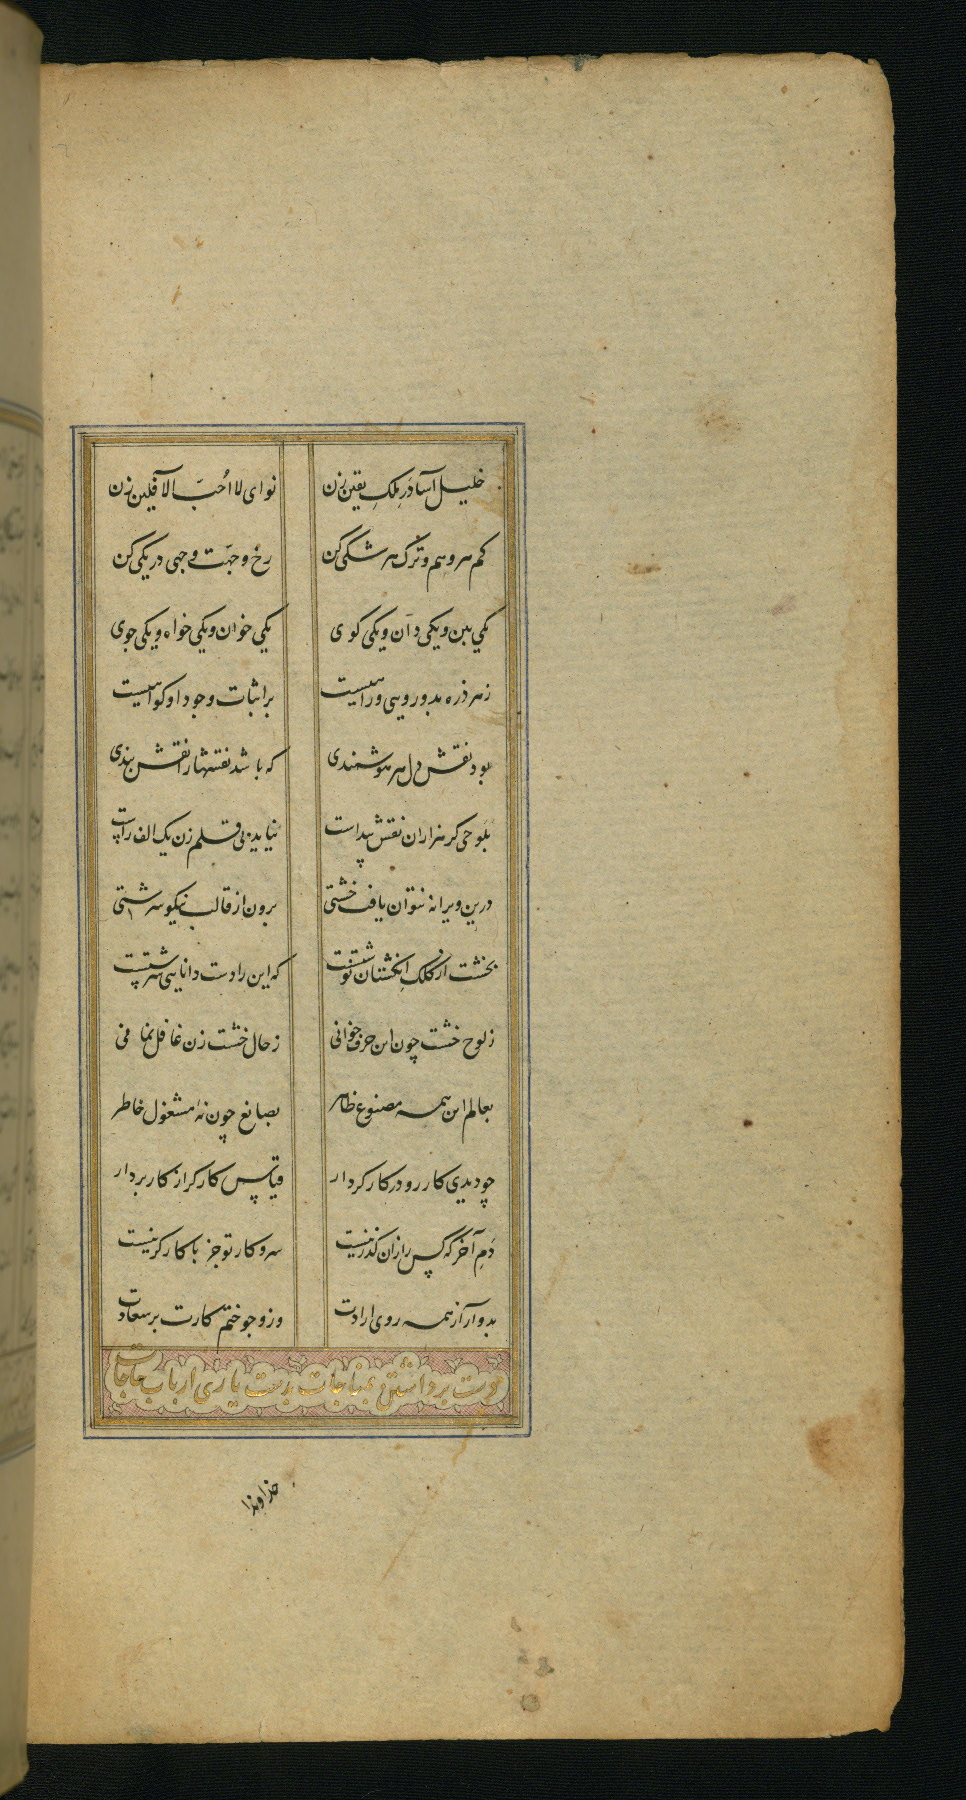 خلیل آسا درِ ملکِ یقین زن نوای لا اُحبّ الآفلین زن
کم هر وهم و ترک هر شکی کن رخ وجهت وجهی در یکی کن
یکی بین و یکی دان و یکی کوی یکی خوان و یکی خواه و یکی جوی
زهر ذره بدو رویی و راهیست بر اثبات وجود او کواهیست
بود نقش دل هر هوشمندی که باشد نقشها را نقش بندی
بلوحی کر هزاران نقش پیداست نیاید بی قلم زن یک الف راست
درین ویرانه نتوان یافت خشتی برون از قالب نیکو سرشتی
بخشت از کلکِ انکشتان نوشتست که این را دست دانایی سرشتست
ز لوح خشت چون این حرف خوانی ز حال خشت زن غافل نمانی
بعالم این همه مصنوع ظاهر بصانع چون نهٔ مشغول خاطر
چو دیدی کار رو در کارکر دار قیاس کارکر از کار بردار
دَمِ آخر که کس را زان کذر نیست سر و کار تو جز با کارکر نیست
بدو آر از همه روی ارادت وزو جو ختم کارت بر سعادت
دست برداشتن بمناجات بدست یاری ارباب حاجات
خداوندا